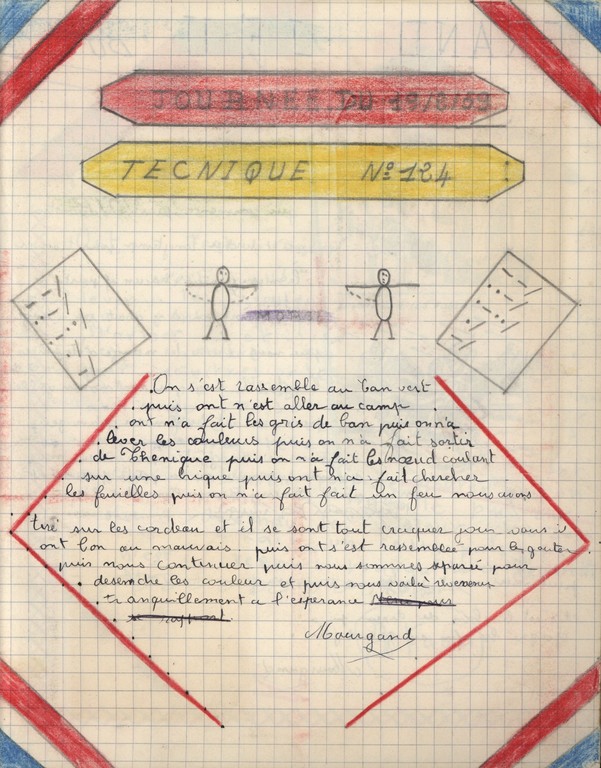 JOURNEE DU 19/8/63
TECNIQUE Nº 124
MORSE
On s'est rassemble au ban vert
puis ont n'est aller au camp
ont n'a fait les gris de ban puis on n'a
lever les couleurs puis on n'a fait sortir
de Thenique puis on n a fait les nœud coulant
sur une brique puis ont n'a fait chercher
les feuielles puis on n'a fait fait un feu nous avons
tiré sur les cordeau et il se sont tout craquer
ont bon au mauvais. puis ont s'est rassemblée pour le gouter
puis nous continuer puis nous sommes separé pour
desendre les couleur et puis nous voilà revenus
tranquillement a l'esperance
rapport
Mourgand